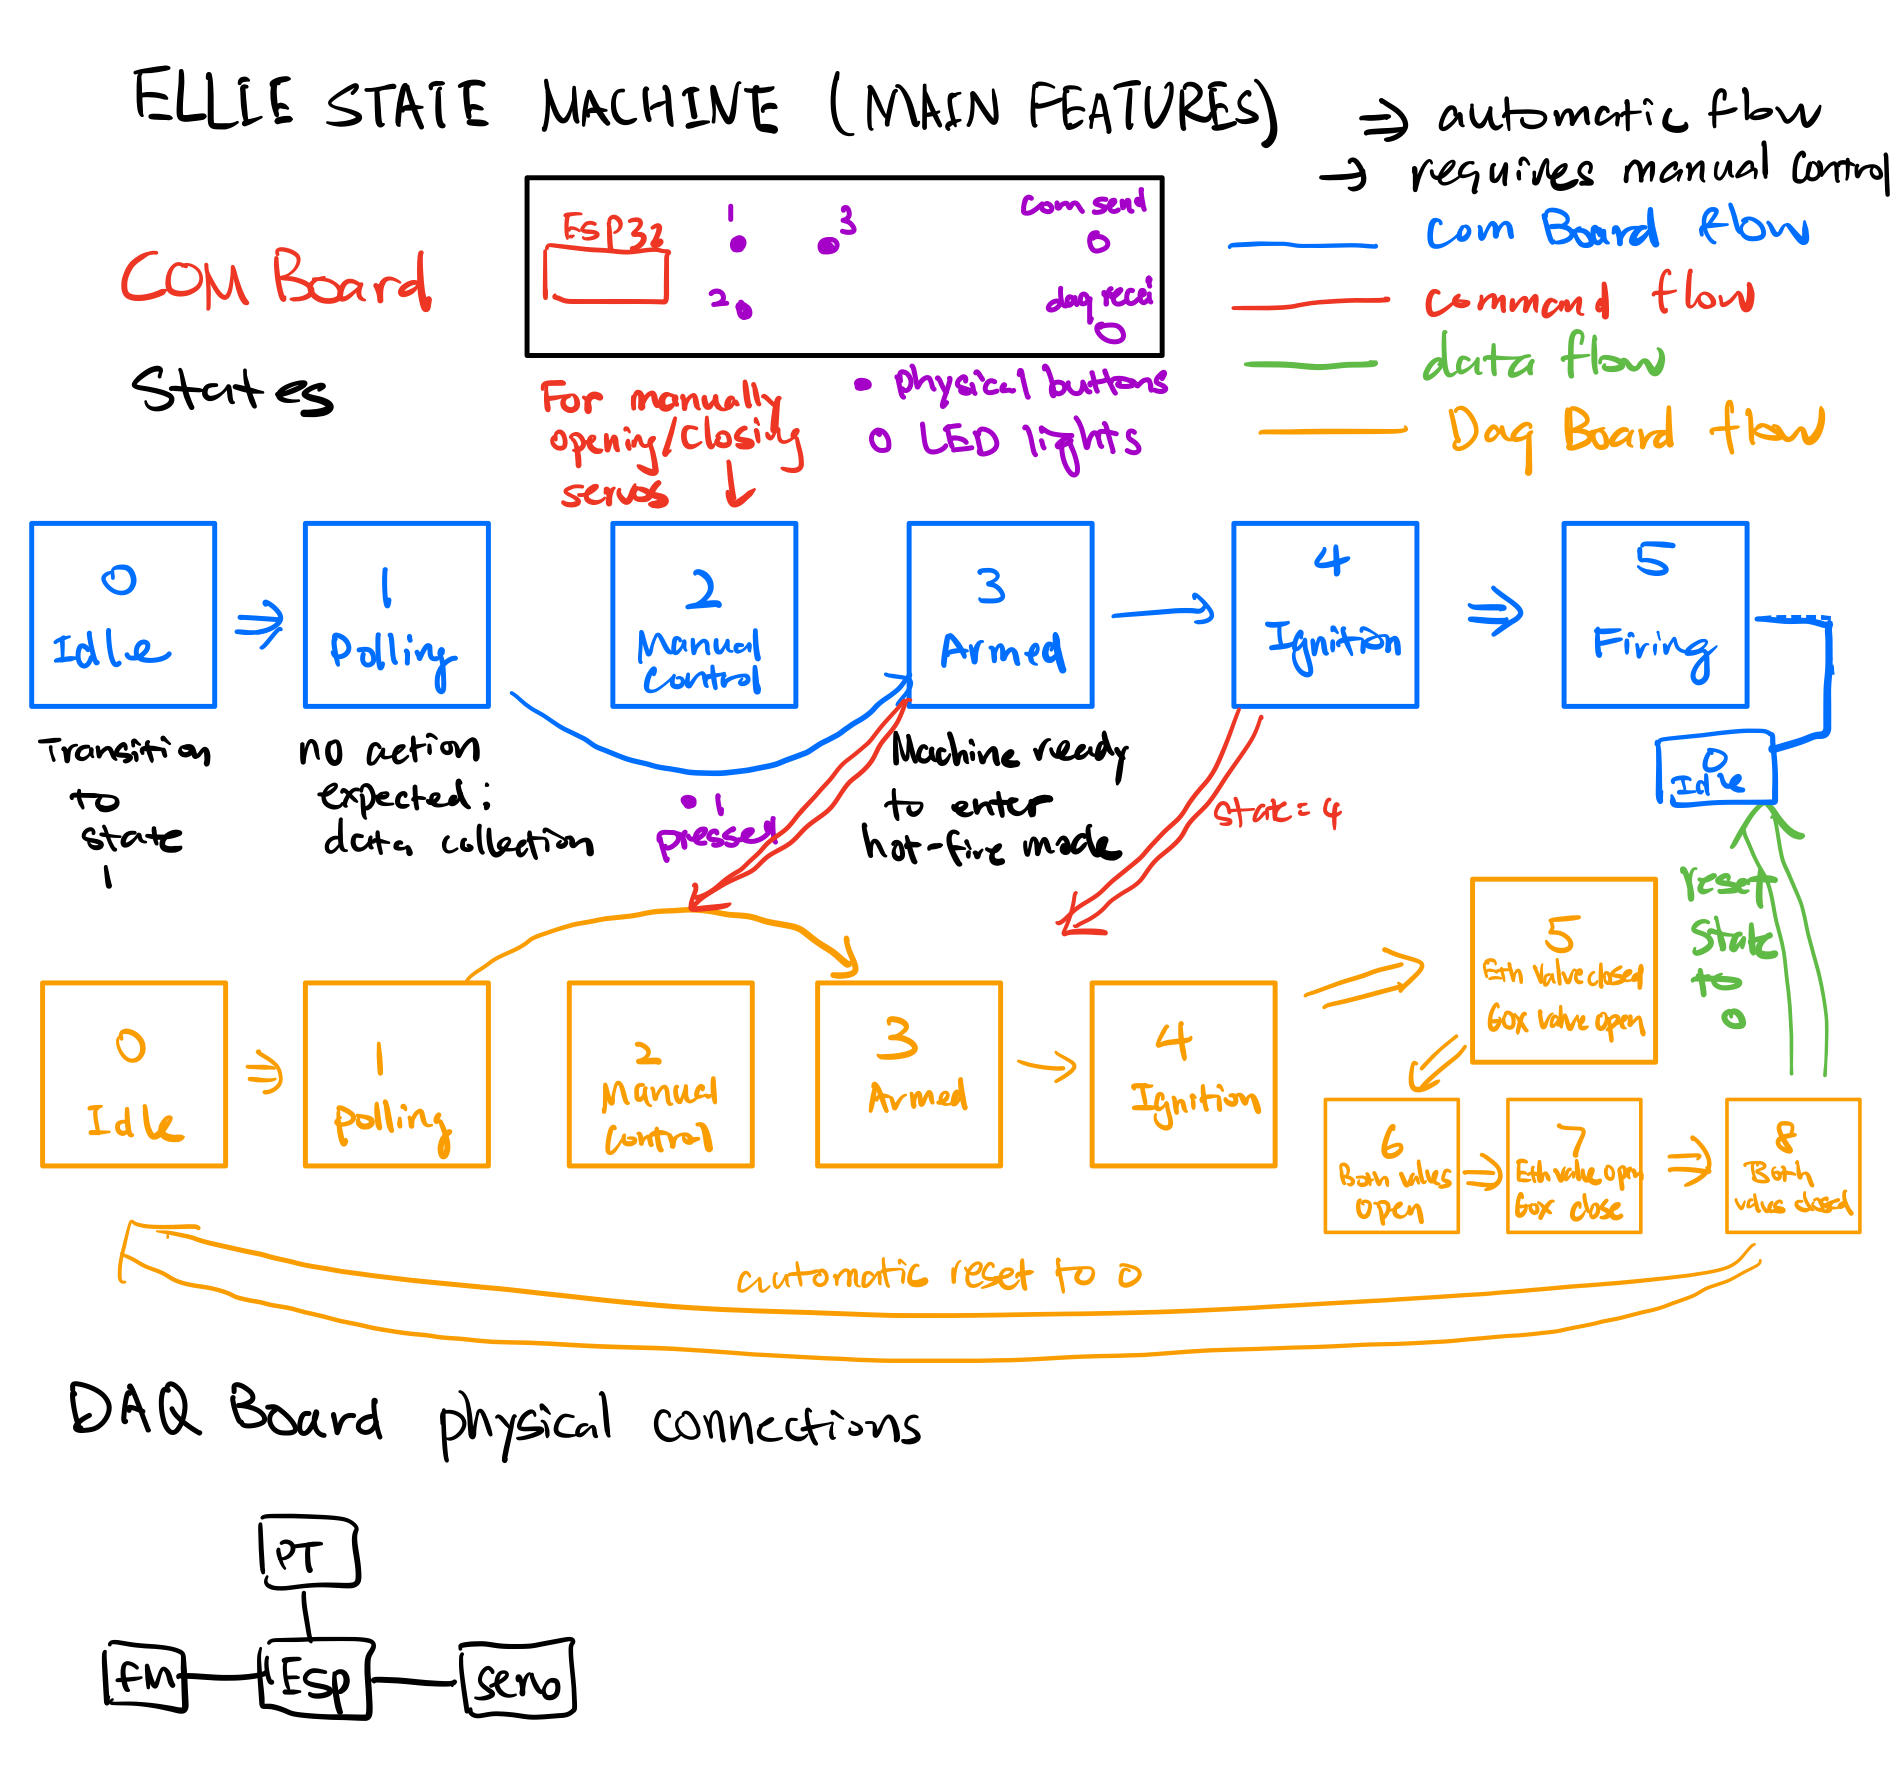 ELLIE STATE MACHINE (MAIN FEATURES)
⇒ automatic flow
→ requires manual control
Com Board flow
command flow
data flow
Daq Board flow
COM Board
States
ESP32
1
3
2
com send
daq recei
For manually
opening/closing
servos
physical buttons
LED lights
0
Idle
1
Polling
2
Manual
Control
3
Armed
4
Ignition
5
Firing
0
Idle
Transition
to
state
1
no action
expected:
data collection
1
pressed
Machine ready
to enter
hot-fire mode
state = 4
reset
state
to
0
0
Idle
1
polling
2
Manual
Control
3
Armed
4
Ignition
5
Eth valve closed
Gox valve open
6
Both valves
open
7
Eth valve open
Gox close
8
Both
valves closed
automatic reset to 0
DAQ Board physical connections
PT
FM
Esp
servo